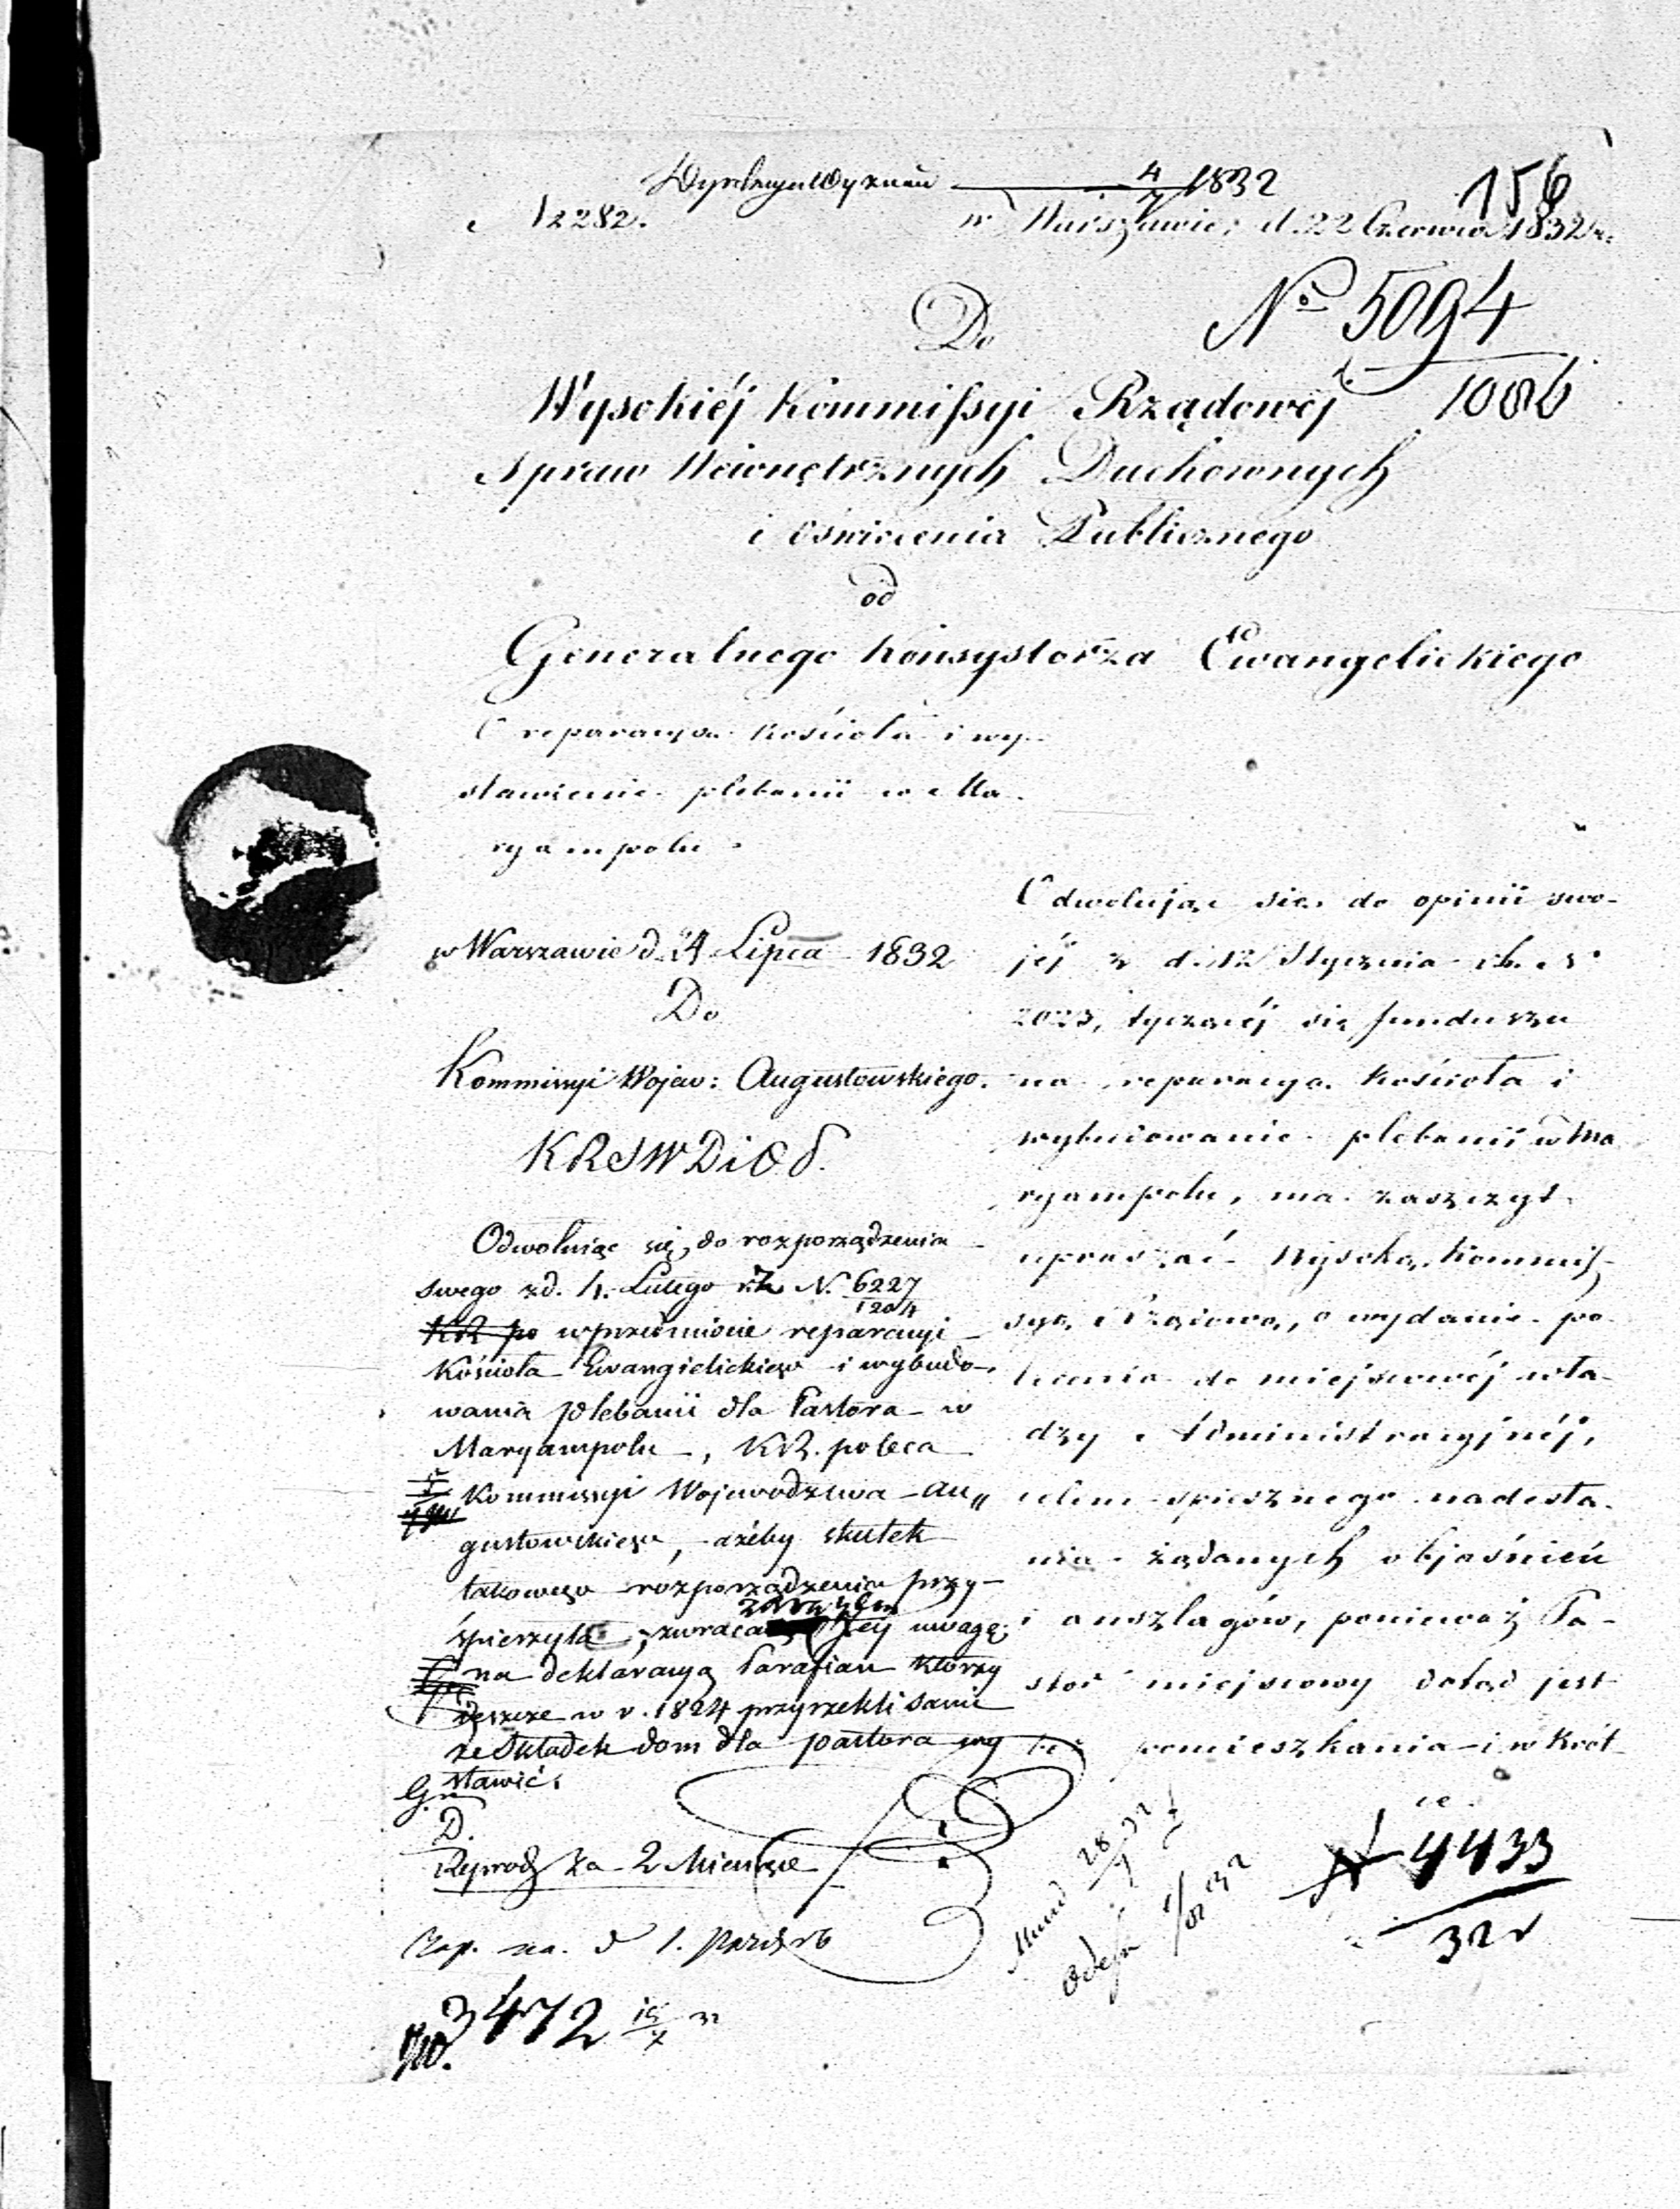 Wydział Wyznań 4/7 1832
156
N 2282.
w Warszawie, d. 22 Czerwca 1832 r.
Do
No 5094
1086
Wysokiéj Kommissyi Rządowéj
Spraw Wewnętrznych Duchownych
i Oświecenia Publicznego
od
Generalnego Konsystorza Ewangelickiego
O reparacyą kościoła i wy-
stawienie plebanii w Ma-
ryampolu.
Odwołując się do opinii swo-
jéj z d. 12 Stycznia r.b. N°
2023, tyczącéj się funduszu
na reparacyą kościoła i
wybudowanie plebanii w Ma
ryampolu, ma zaszczyt
upraszać Wysoką Kommis-
syą Rządową, o wydanie po-
lecenia do miejscowéj wła-
dzy Administracyjnéj,
celem spiesznego nadesła-
nia żądanych objaśnień
i anszlagów, ponieważ Pa-
stor miejscowy dotąd jest
bez pomieszkania i w krót-
ce
N 4433
32 r
w Warszawie d. 24 Lipca 1832
Do
Kommissyi Wojew: Augustowskiego.
KRSWDiOP.
Odwołuiąc się do rozporządzenia
swego z d. 4. Lutego r.b. N. 6227
1204
KR po w przedmiocie reparacyi
Kościoła Ewangielickiego i wybudo-
wania plebanii dla Pastora w
Maryampolu, KR. poleca
Kommissyi Województwa Au„
gustowskiego, ażeby skutek
takowego rozporządzenia przy-
śpieszyła, zwraca zarazem Jey uwagę
na deklaracyą Parafian którzy
jeszcze w r. 1824 przyrzekli sami
ze składek dom dla pastora wy
stawić.
D.
Reprod. za 2 Miesiące
Zap. na d 1. Paźdz rb
Mund 28/7 32
Odesł 1/8 32
No. 3472 15/X 32